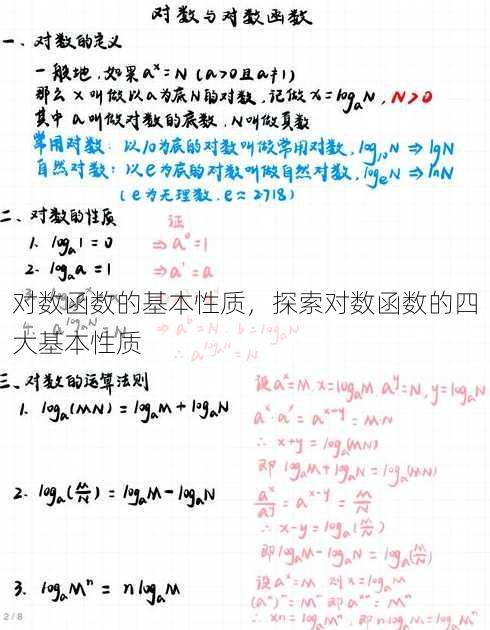 对数与对数函数
一、对数的定义
一般地,如果aˣ=N (a>0且a≠1)
那么 x 叫做以a为底N的对数,记做 x=logₐN, N>0
其中 a 叫做对数的底数,N叫做真数
常用对数: 以10为底的对数叫做常用对数,log₁₀N ⇒ lgN
自然对数: 以e为底的对数叫做自然对数,logₑN ⇒ lnN
(e为无理数,e≈2.718)
二、对数的性质 证
1. logₐ1=0 ⇒a⁰=1
2. logₐa=1 ⇒a¹=a
对数函数的基本性质,探索对数函数的四
大基本性质
⇒aᵇ=N, b=logₐN
∴ a^(logₐN)=N
三、对数的运算法则
设aˣ=M, x=logₐM, aʸ=N, y=logₐN
1. logₐ(MN)=logₐM+logₐN
aˣ·aʸ=aˣ⁺ʸ=M·N
∴ x+y=logₐ(MN)
即 logₐM+logₐN=logₐ(MN)
2. logₐ(M/N)=logₐM-logₐN
aˣ/aʸ=aˣ⁻ʸ=M/N
∴ x-y=logₐ(M/N)
即logₐM-logₐN=logₐ(M/N)
3. logₐMⁿ=nlogₐM
设aˣ=M 则x=logₐM
(aˣ)ⁿ=Mⁿ 即aˣⁿ=Mⁿ
∴ xn=logₐMⁿ, 即nlogₐM=logₐMⁿ
2/8